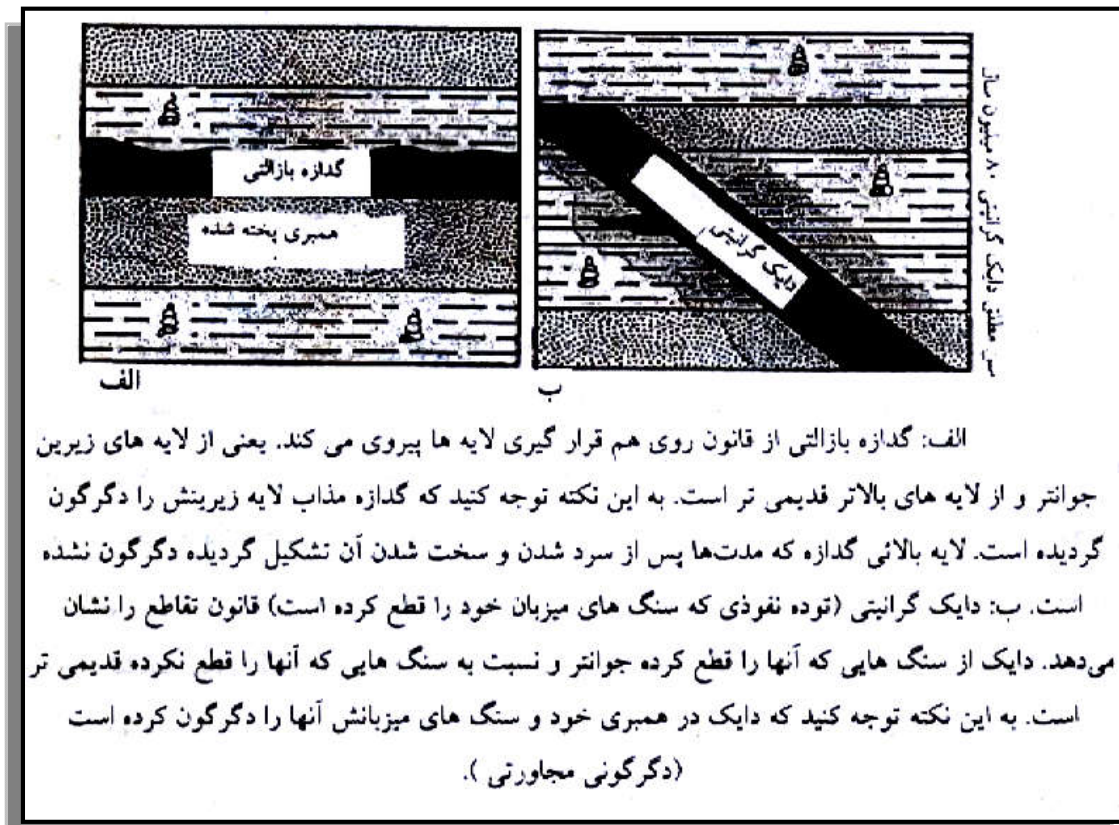 گدازه بازالتی
همبری پخته شده
الف
دایک گرانیتی
ب
سن مطلق دایک گرانیتی ۸۰ میلیون سال
الف: گدازه بازالتی از قانون روی هم قرار گیری لایه ها پیروی می کند. یعنی از لایه های زیرین
جوانتر و از لایه های بالاتر قدیمی تر است. به این نکته توجه کنید که گدازه مذاب لایه زیرینش را دگرگون
گردیده است. لایه بالائی گدازه که مدت‌ها پس از سرد شدن و سخت شدن آن تشکیل گردیده دگرگون نشده
است. ب: دایک گرانیتی (توده نفوذی که سنگ های میزبان خود را قطع کرده است) قانون تقاطع را نشان
می‌دهد. دایک از سنگ هایی که آنها را قطع کرده جوانتر و نسبت به سنگ هایی که آنها را قطع نکرده قدیمی تر
است. به این نکته توجه کنید که دایک در همبری خود و سنگ های میزبانش آنها را دگرگون کرده است
(دگرگونی مجاورتی ).